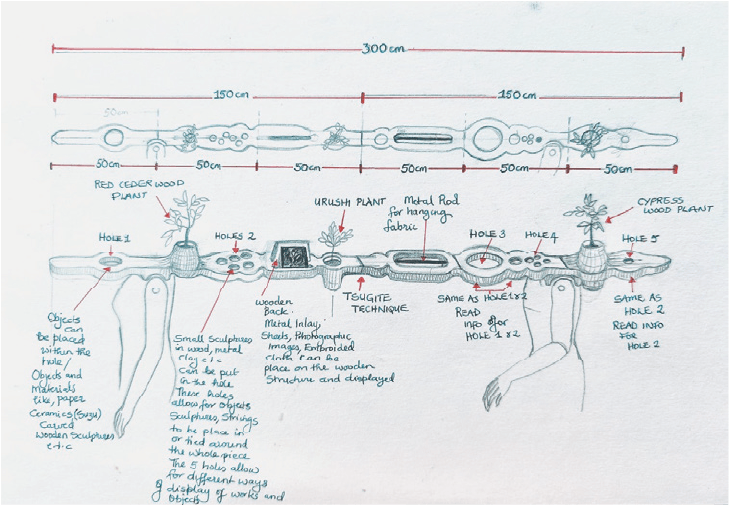 300cm
150cm
150cm
50cm
50cm
50cm
50cm
50cm
50cm
50cm
RED CEDERWOOD
PLANT
URUSHI PLANT
Metal Rod
for hanging
fabric
CYPRESS
WOOD PLANT
HOLE 1
HOLES 2
HOLE 3
HOLE 4
HOLE 5
Objects
can
be placed
within the
hole/
Objects and
Materials
like, paper
Ceramics (Suzu)
Carved
Wooden Sculptures
e.t.c
Small Sculptures
in wood, metal
clay
Can be put
in the hole
These holes
allow for objects
Sculptures, Strings
to be place in
or tied around
the whole piece
The 5 holes allow
for different ways
of display of works and
objects
wooden
Back.
Metal Inlay,
Sheets, Photographic
Images, Embroided
cloth can be
place on the wooden
Structure and displayed
TSUGITE
TECHNIQUE
SAME AS HOLE 1 & 2
READ
INFO for
HOLE 1 & 2
SAME AS
HOLE 2
READ INFO
FOR
HOLE 2